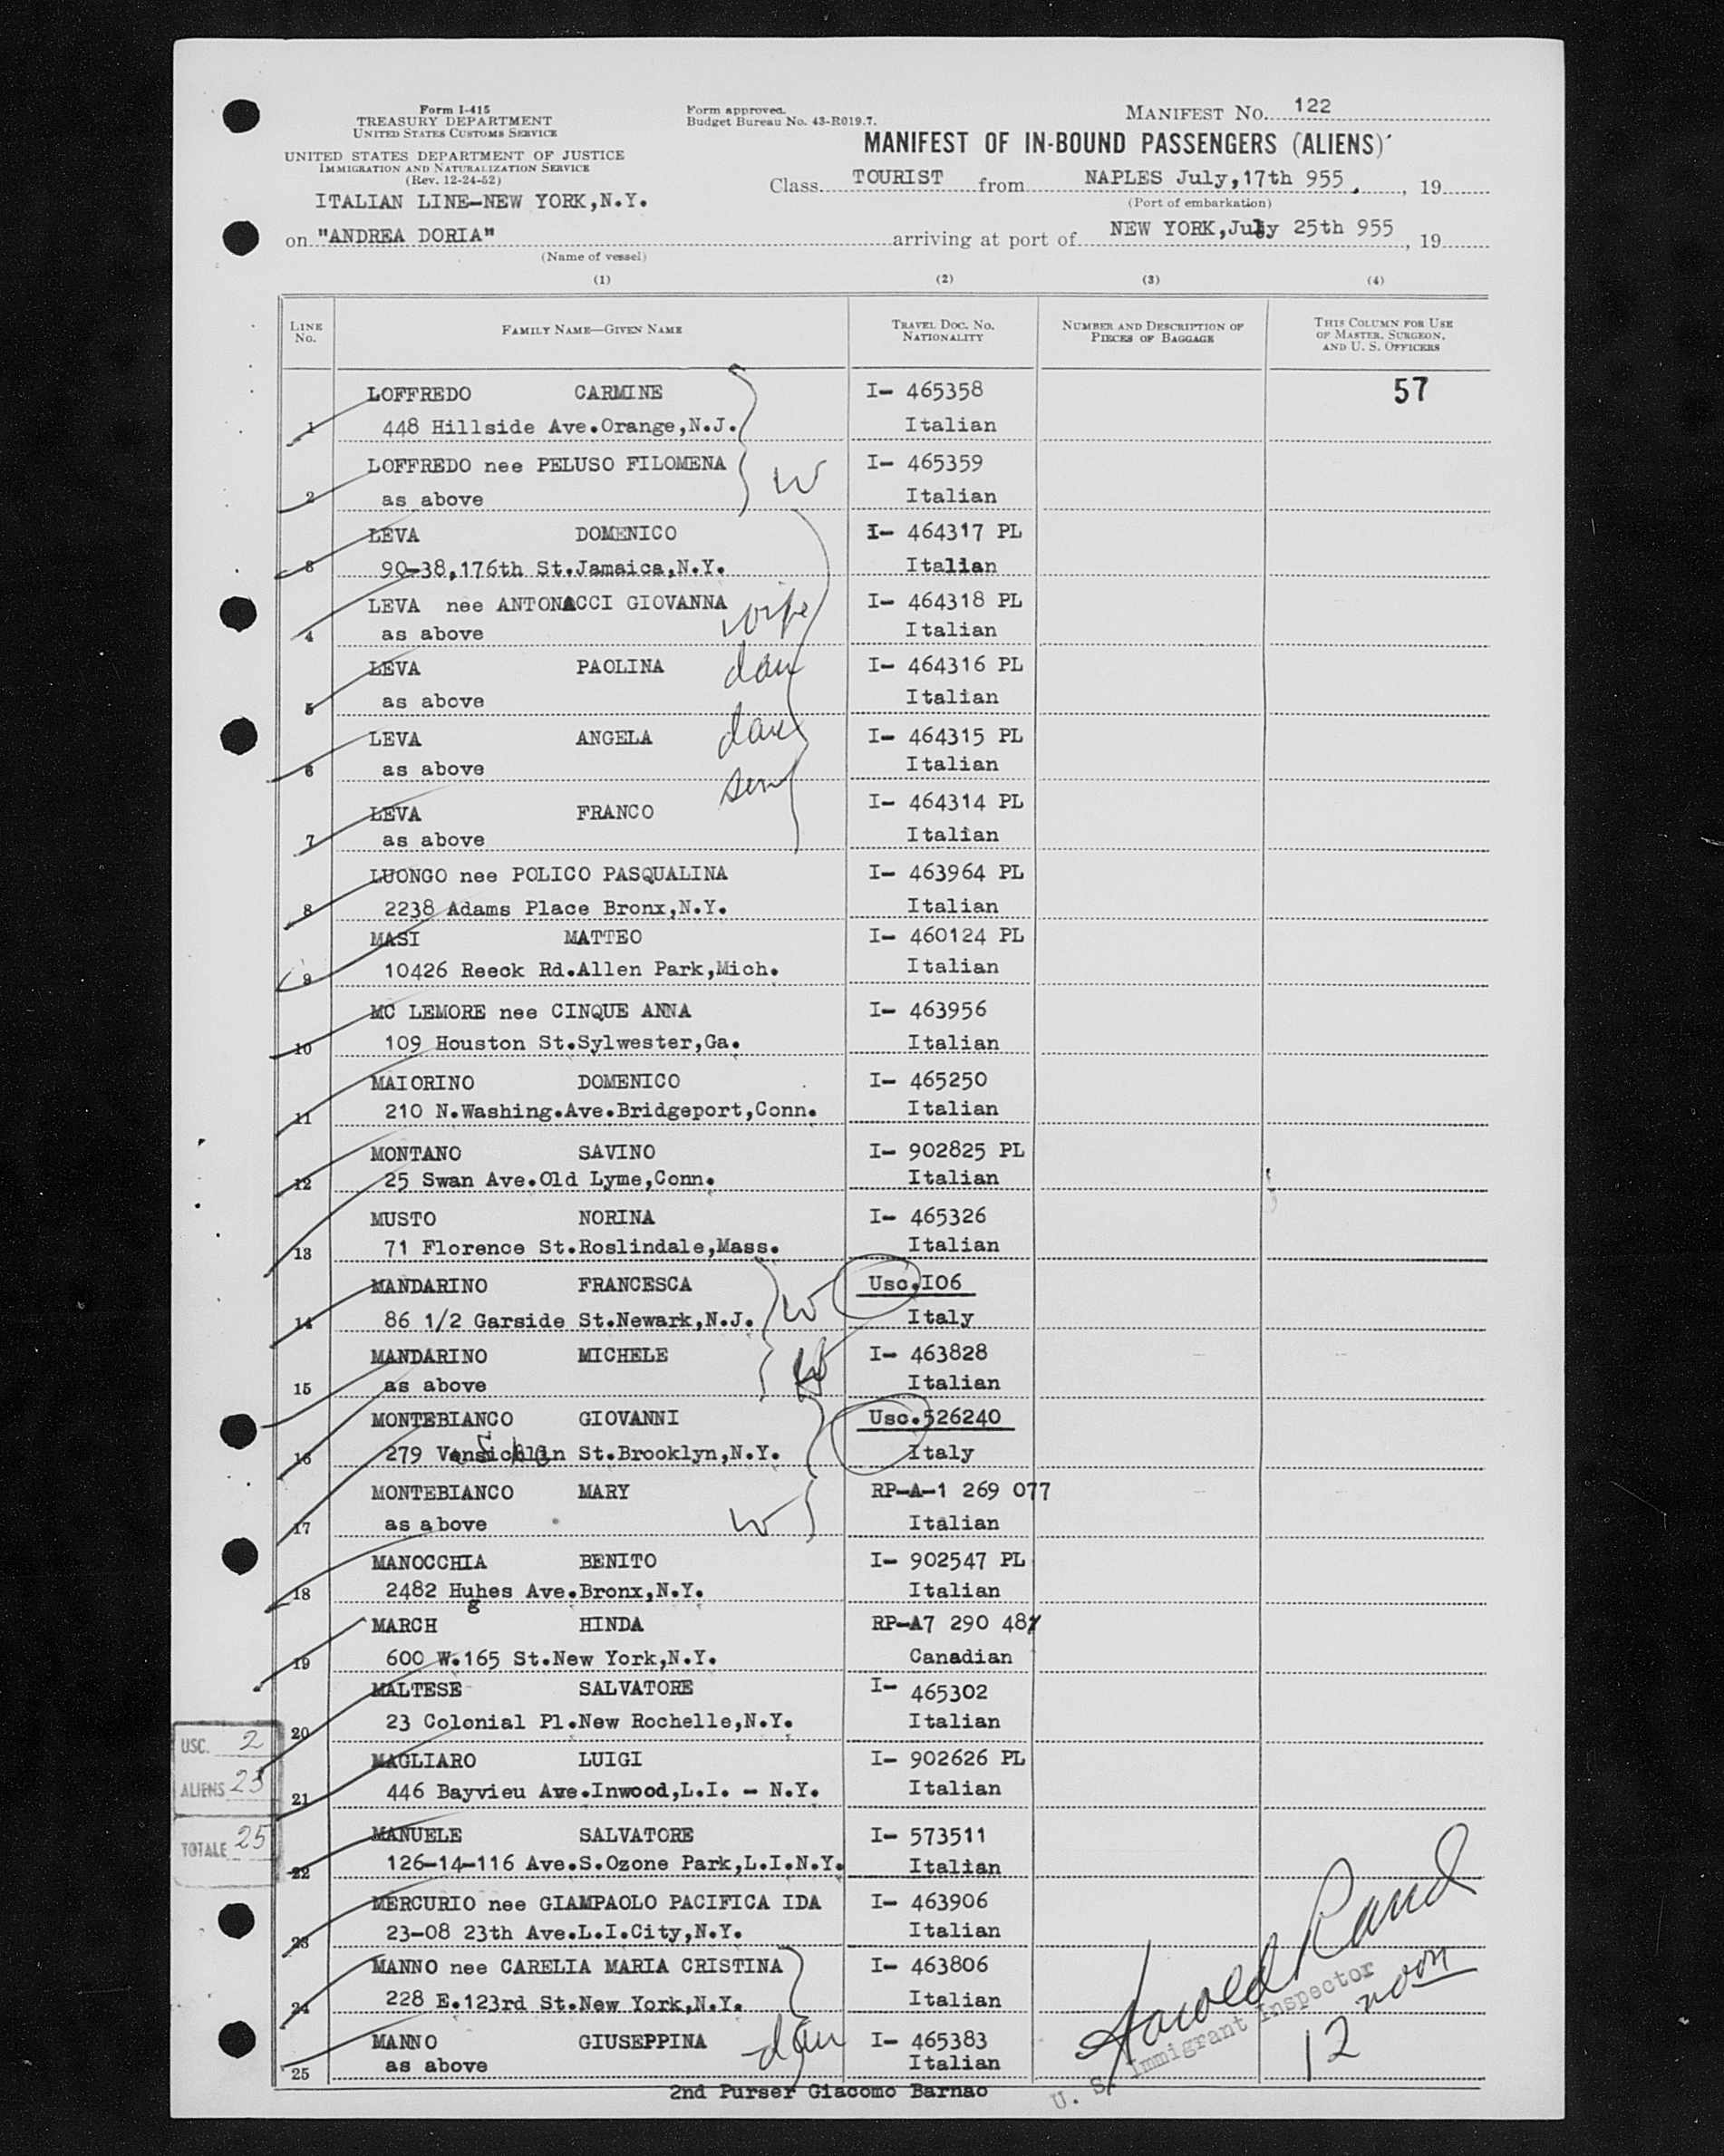 Form I-415
TREASURY DEPARTMENT
UNITED STATES CUSTOMS SERVICE
UNITED STATES DEPARTMENT OF JUSTICE
IMMIGRATION AND NATURALIZATION SERVICE
(Rev. 12-24-52)
ITALIAN LINE-NEW YORK,N.Y.
Form approved.
Budget Bureau No. 43-R019.7.
MANIFEST No. 122
MANIFEST OF IN-BOUND PASSENGERS (ALIENS)
Class TOURIST from NAPLES July,17th 955. , 19
(Port of embarkation)
on "ANDREA DORIA" arriving at port of NEW YORK,July 25th 955 , 19
(Name of vessel)
(1) (2) (3) (4)
LINE No. FAMILY NAME—GIVEN NAME TRAVEL DOC. NO. NATIONALITY NUMBER AND DESCRIPTION OF PIECES OF BAGGAGE THIS COLUMN FOR USE OF MASTER, SURGEON, AND U. S. OFFICERS
LOFFREDO CARMINE I- 465358 57
1 448 Hillside Ave.Orange,N.J. Italian
LOFFREDO nee PELUSO FILOMENA W I- 465359
2 as above Italian
LEVA DOMENICO I- 464317 PL
3 90-38,176th St.Jamaica,N.Y. Italian
LEVA nee ANTONACCI GIOVANNA wife I- 464318 PL
4 as above Italian
LEVA PAOLINA dau I- 464316 PL
5 as above Italian
LEVA ANGELA dau I- 464315 PL
6 as above Italian
LEVA FRANCO son I- 464314 PL
7 as above Italian
LUONGO nee POLICO PASQUALINA I- 463964 PL
8 2238 Adams Place Bronx,N.Y. Italian
MASI MATTEO I- 460124 PL
9 10426 Reeck Rd.Allen Park,Mich. Italian
MC LEMORE nee CINQUE ANNA I- 463956
10 109 Houston St.Sylwester,Ga. Italian
MAIORINO DOMENICO I- 465250
11 210 N.Washing.Ave.Bridgeport,Conn. Italian
MONTANO SAVINO I- 902825 PL
12 25 Swan Ave.Old Lyme,Conn. Italian
MUSTO NORINA I- 465326
13 71 Florence St.Roslindale,Mass. Italian
MANDARINO FRANCESCA W Usc.I06
14 86 1/2 Garside St.Newark,N.J. Italy
MANDARINO MICHELE I- 463828
15 as above Italian
MONTEBIANCO GIOVANNI Usc.526240
16 279 St.Brooklyn,N.Y. Italy
MONTEBIANCO MARY RP-A-1 269 077
17 as above W Italian
MANOCCHIA BENITO I- 902547 PL
18 2482 Hughes Ave.Bronx,N.Y. Italian
MARCH HINDA RP-A7 290 48
19 600 W.165 St.New York,N.Y. Canadian
MALTESE SALVATORE I- 465302
20 23 Colonial Pl.New Rochelle,N.Y. Italian
MAGLIARO LUIGI I- 902626 PL
21 446 Bayvieu Ave.Inwood,L.I. - N.Y. Italian
MANUELE SALVATORE I- 573511
22 126-14-116 Ave.S.Ozone Park,L.I.N.Y. Italian
MERCURIO nee GIAMPAOLO PACIFICA IDA I- 463906
23 23-08 23th Ave.L.I.City,N.Y. Italian
MANNO nee CARELIA MARIA CRISTINA I- 463806
24 228 E.123rd St.New York,N.Y. Italian
MANNO GIUSEPPINA dau I- 465383
25 as above Italian
2nd Purser Giacomo Barnao
USC. 2
ALIENS 23
TOTALE 25
Harold Rand
U. S. Immigrant Inspector
12 noon